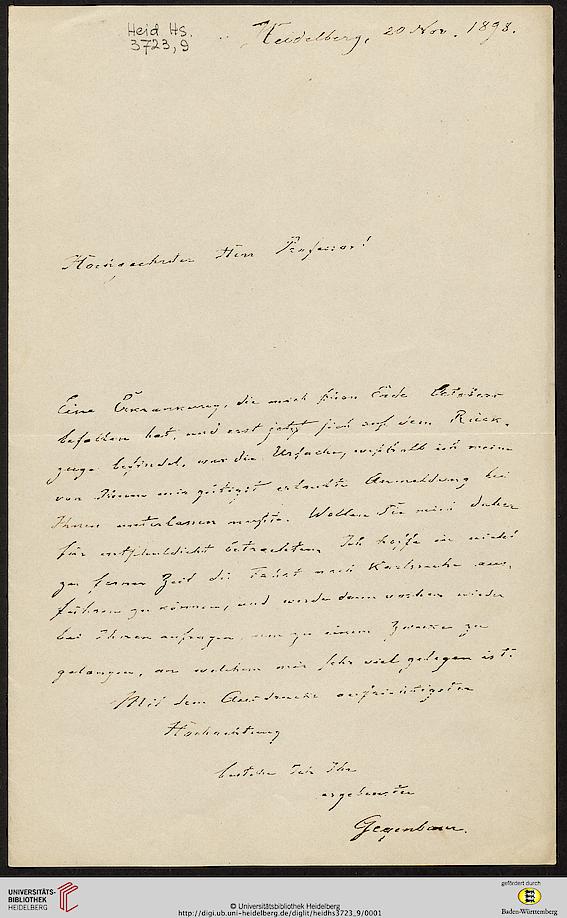 Heid Hs.
3723,9
Heidelberg, 20 Nov. 1898.
Hochgeehrter Herr Professor!
Eine Erkrankung, die mich schon Ende October
befallen hat, und erst jetzt sich auf dem Rück-
zuge befindet, war die Ursache, weßhalb ich meine
von Ihnen mir gütigst erlaubte Anmeldung bei
Ihnen unterlassen mußte. Wollen Sie mich daher
für entschuldigt betrachten. Ich hoffe in nicht
zu ferner Zeit die Fahrt nach Karlsruhe aus-
führen zu können, und werde dann vorher wieder
bei Ihnen anfragen, um zu einem Zwecke zu
gelangen, an welchem mir sehr viel gelegen ist.
Mit dem Ausdrucke aufrichtigster
Hochachtung
Ihr
ergebenster
Gegenbaur.
UNIVERSITÄTS-
BIBLIOTHEK
HEIDELBERG
© Universitätsbibliothek Heidelberg
http://digi.ub.uni-heidelberg.de/diglit/heidhs3723_9/0001
gefördert durch
Baden-Württemberg